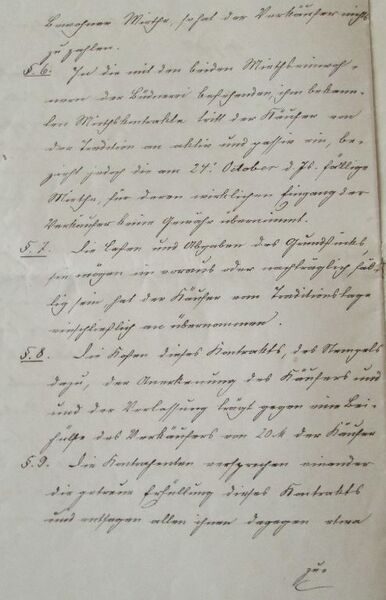 bewohner Miethe, so hat der Verkäufer nichts
zu zahlen.
§. 6. In die mit den beiden Miethseinwoh-
nern der Büdnerei bestehenden, ihm bekann-
ten Miethskontrakte tritt der Käufer von
der Tradition an aktiv und passiv ein, be-
zieht jedoch die am 24t. October d. Js. fällige
Miethe, für deren wirklichen Eingang der
Verkäufer keine Gewähr übernimmt.
§. 7. Die Lasten und Abgaben des Grundstücks,
sie mögen im voraus oder nachträglich fäl-
lig sein, hat der Käufer vom Traditionstage
einschließlich an übernommen.
§. 8. Die Kosten dieses Kontrakts, des Stempels
dazu, der Anerkennung des Käufers und
und der Verlassung trägt gegen eine Bei-
hülfe des Verkäufers von 20 M der Käufer
§. 9. Die Kontrahenten versprechen einander
die getreue Erfüllung dieses Kontrakts
und entsagen allen ihnen dagegen etwa
zu-